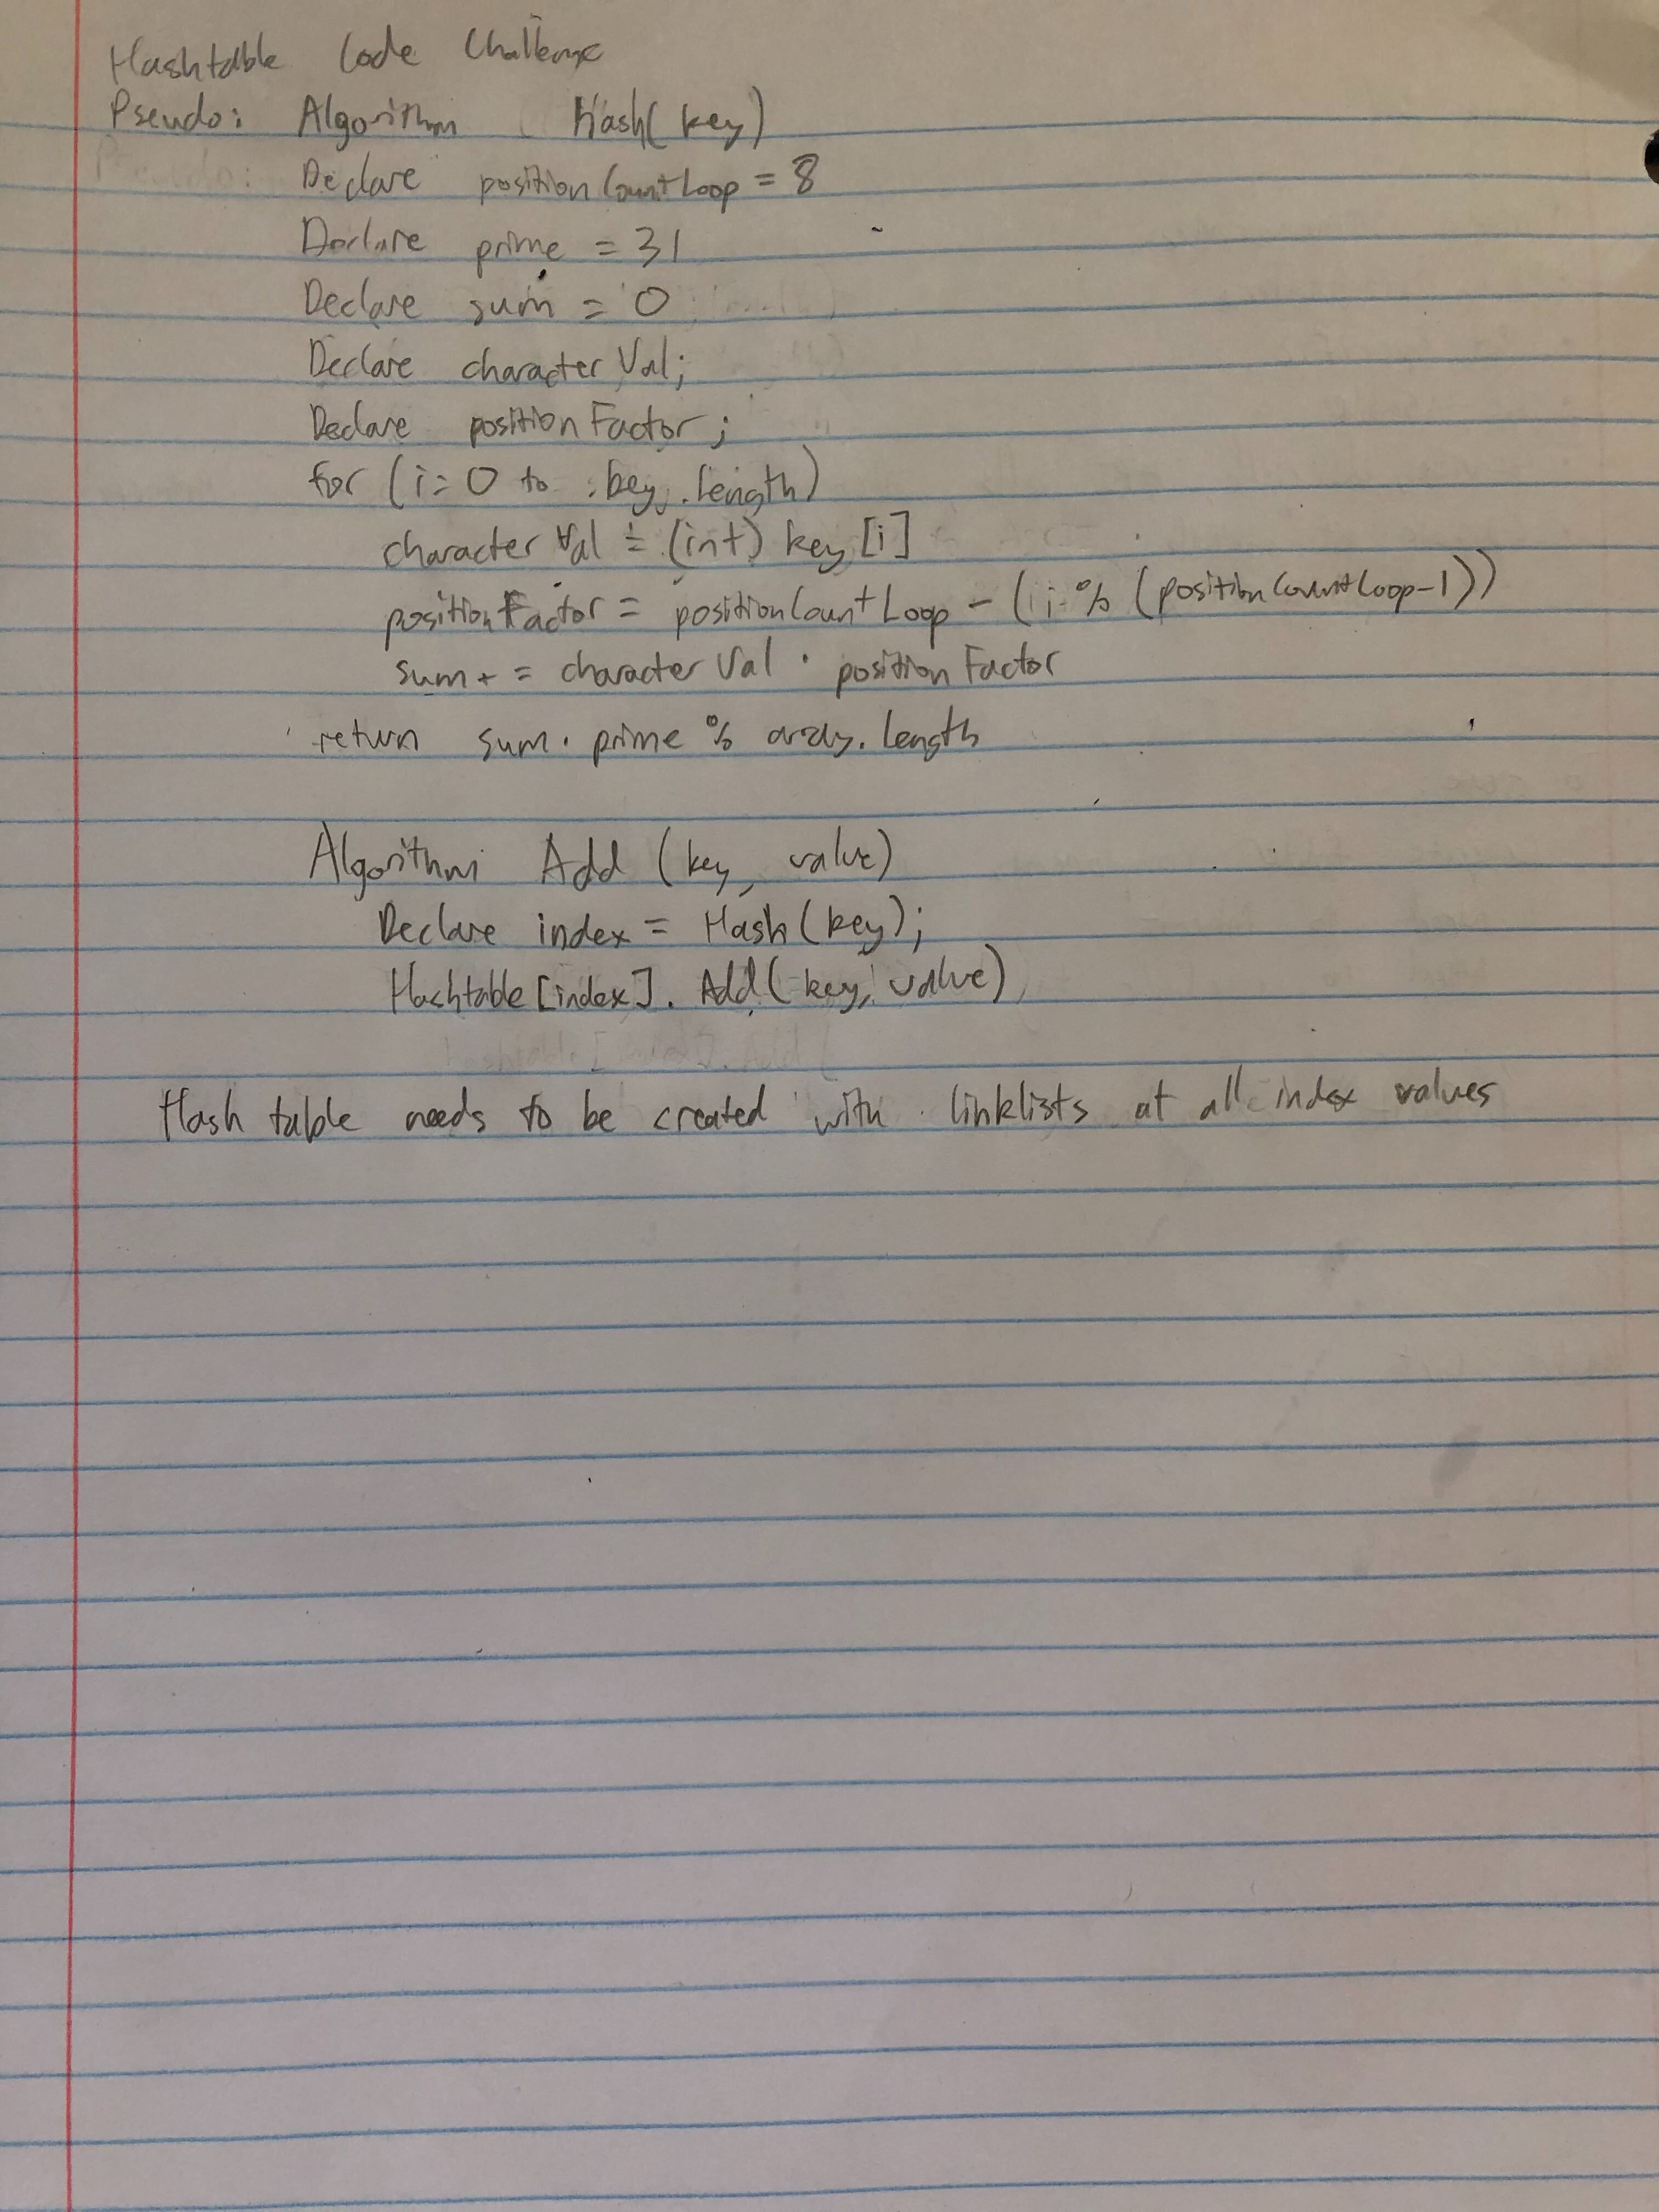 Hashtable Code Challenge
Pseudo: Algorithm Hash(key)
Declare positionCountLoop = 8
Declare prime = 31
Declare sum = 0
Declare characterVal;
Declare positionFactor;
for (i=0 to key.length)
characterVal = (int) key[i]
positionFactor = positionCountLoop - (i % (positionCountLoop-1))
sum += characterVal · positionFactor
return sum · prime % array.length
Algorithm Add (key, value)
Declare index = Hash(key);
Hashtable[index].Add(key, value)
Hash table needs to be created with linklists at all index values